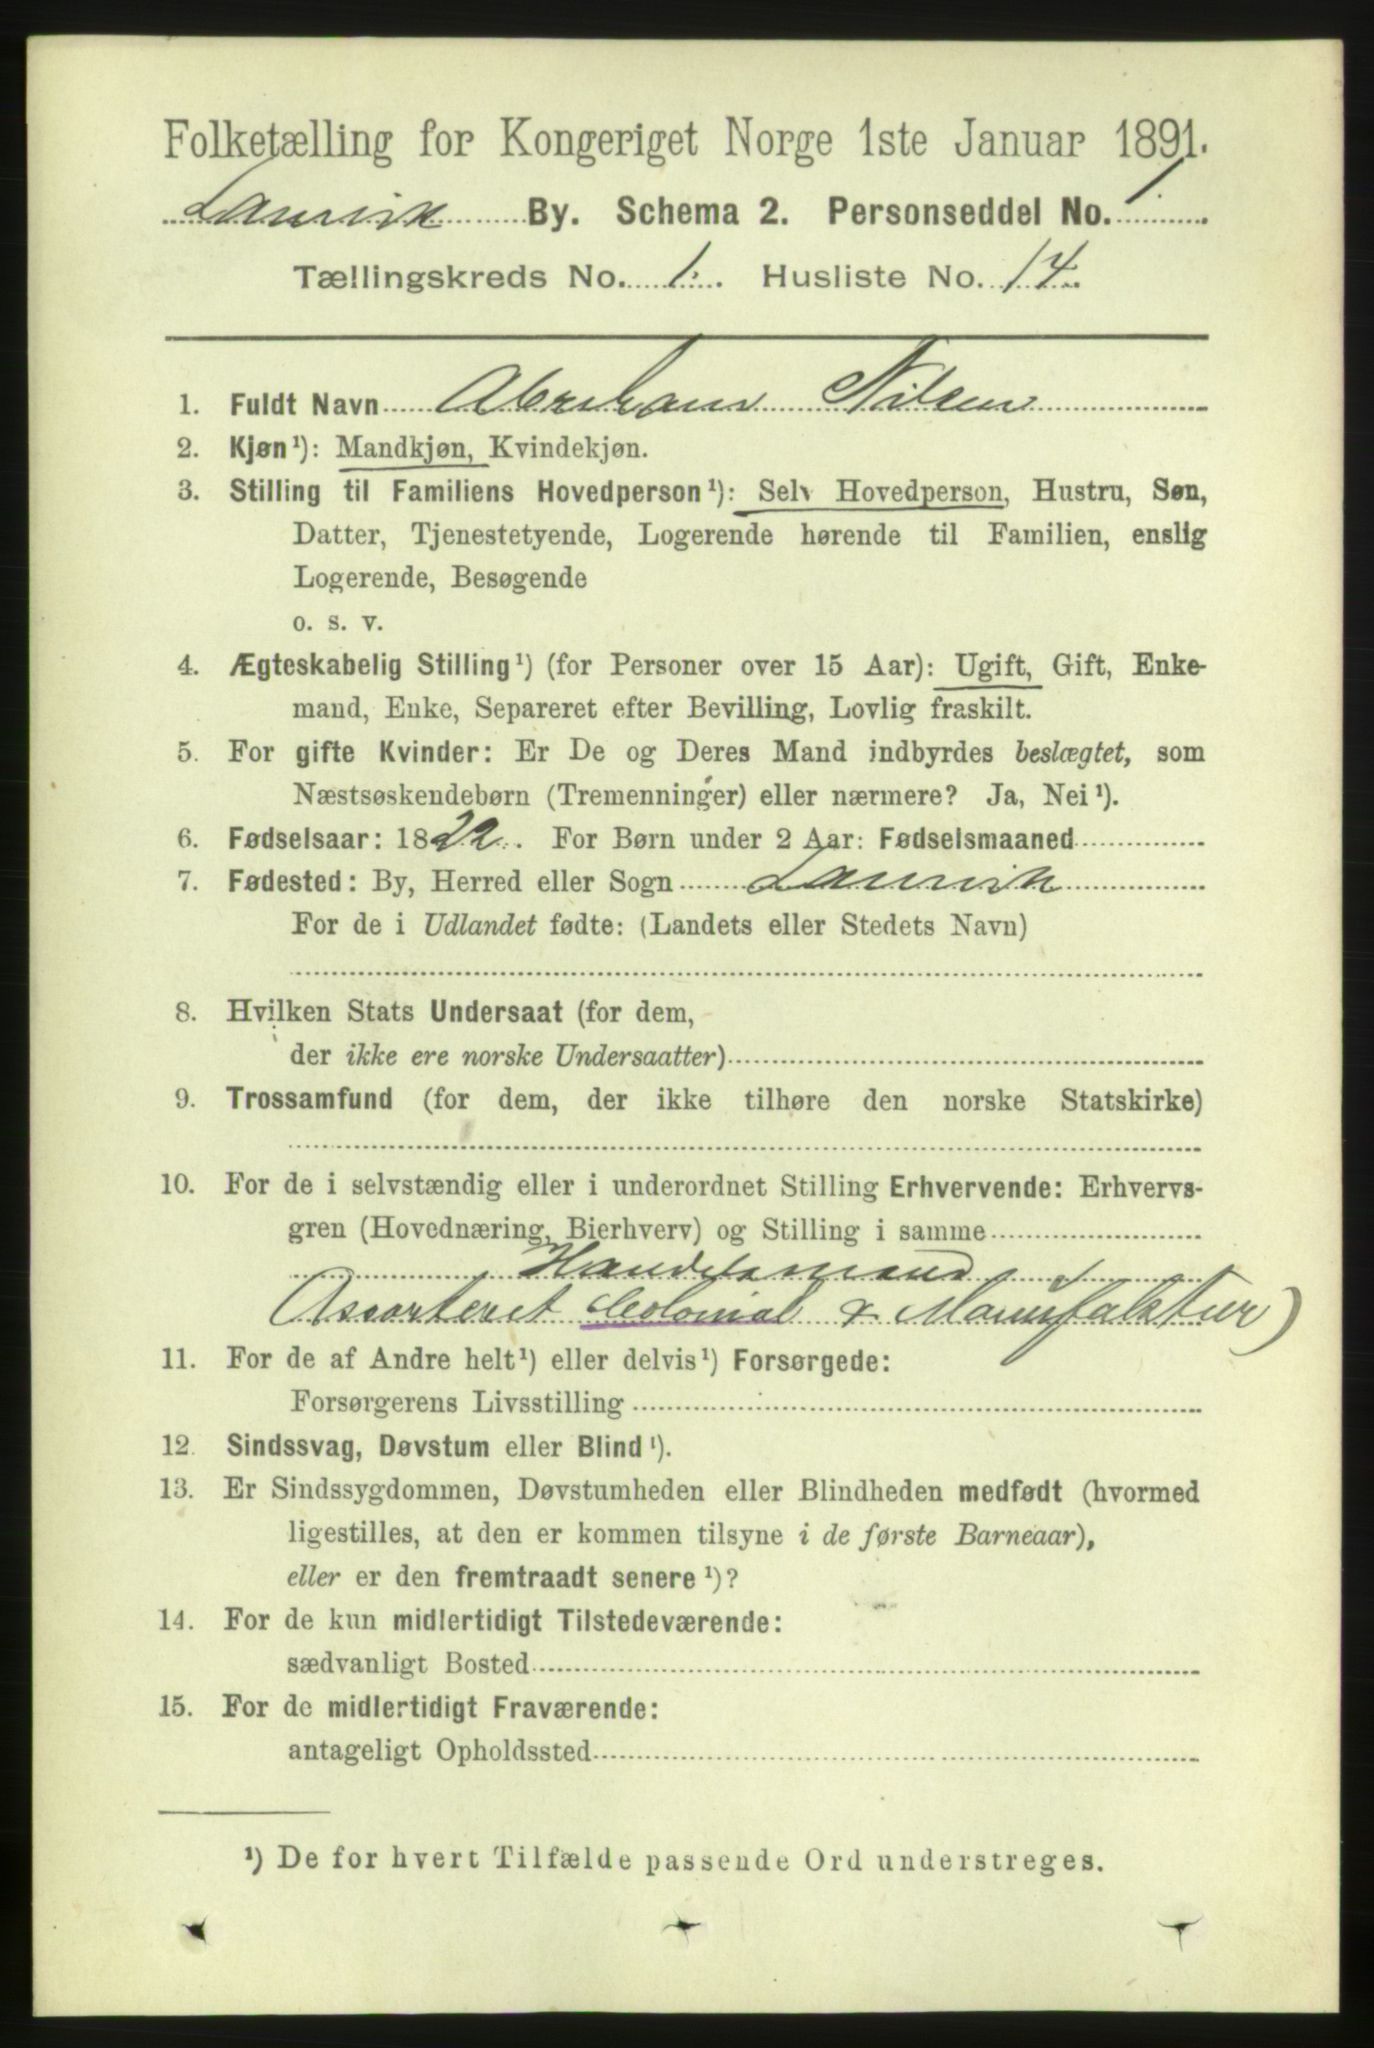 Folketælling for Kongeriget Norge 1ste Januar 1891.
Laurvik By. Schema 2. Personseddel No. 1
Tællingskreds No. 1. Husliste No. 14.
1. Fuldt Navn Abraham Nilsen
2. Kjøn¹): Mandkjøn, Kvindekjøn.
3. Stilling til Familiens Hovedperson¹): Selv Hovedperson, Hustru, Søn,
Datter, Tjenestetyende, Logerende hørende til Familien, enslig
Logerende, Besøgende
o. s. v.
4. Ægteskabelig Stilling¹) (for Personer over 15 Aar): Ugift, Gift, Enke-
mand, Enke, Separeret efter Bevilling, Lovlig fraskilt.
5. For gifte Kvinder: Er De og Deres Mand indbyrdes beslægtet, som
Næstsøskendebørn (Tremenninger) eller nærmere? Ja, Nei¹).
6. Fødselsaar: 1822. For Børn under 2 Aar: Fødselsmaaned
7. Fødested: By, Herred eller Sogn Laurvik
For de i Udlandet fødte: (Landets eller Stedets Navn)
8. Hvilken Stats Undersaat (for dem,
der ikke ere norske Undersaatter)
9. Trossamfund (for dem, der ikke tilhøre den norske Statskirke)
10. For de i selvstændig eller i underordnet Stilling Erhvervende: Erhvervs-
gren (Hovednæring, Bierhverv) og Stilling i samme
Handelsmand
Assorteret Colonial & Manufaktur)
11. For de af Andre helt¹) eller delvis¹) Forsørgede:
Forsørgerens Livsstilling
12. Sindssvag, Døvstum eller Blind¹).
13. Er Sindssygdommen, Døvstumheden eller Blindheden medfødt (hvormed
ligestilles, at den er kommen tilsyne i de første Barneaar),
eller er den fremtraadt senere¹)?
14. For de kun midlertidigt Tilstedeværende:
sædvanligt Bosted
15. For de midlertidigt Fraværende:
antageligt Opholdssted
¹) De for hvert Tilfælde passende Ord understreges.